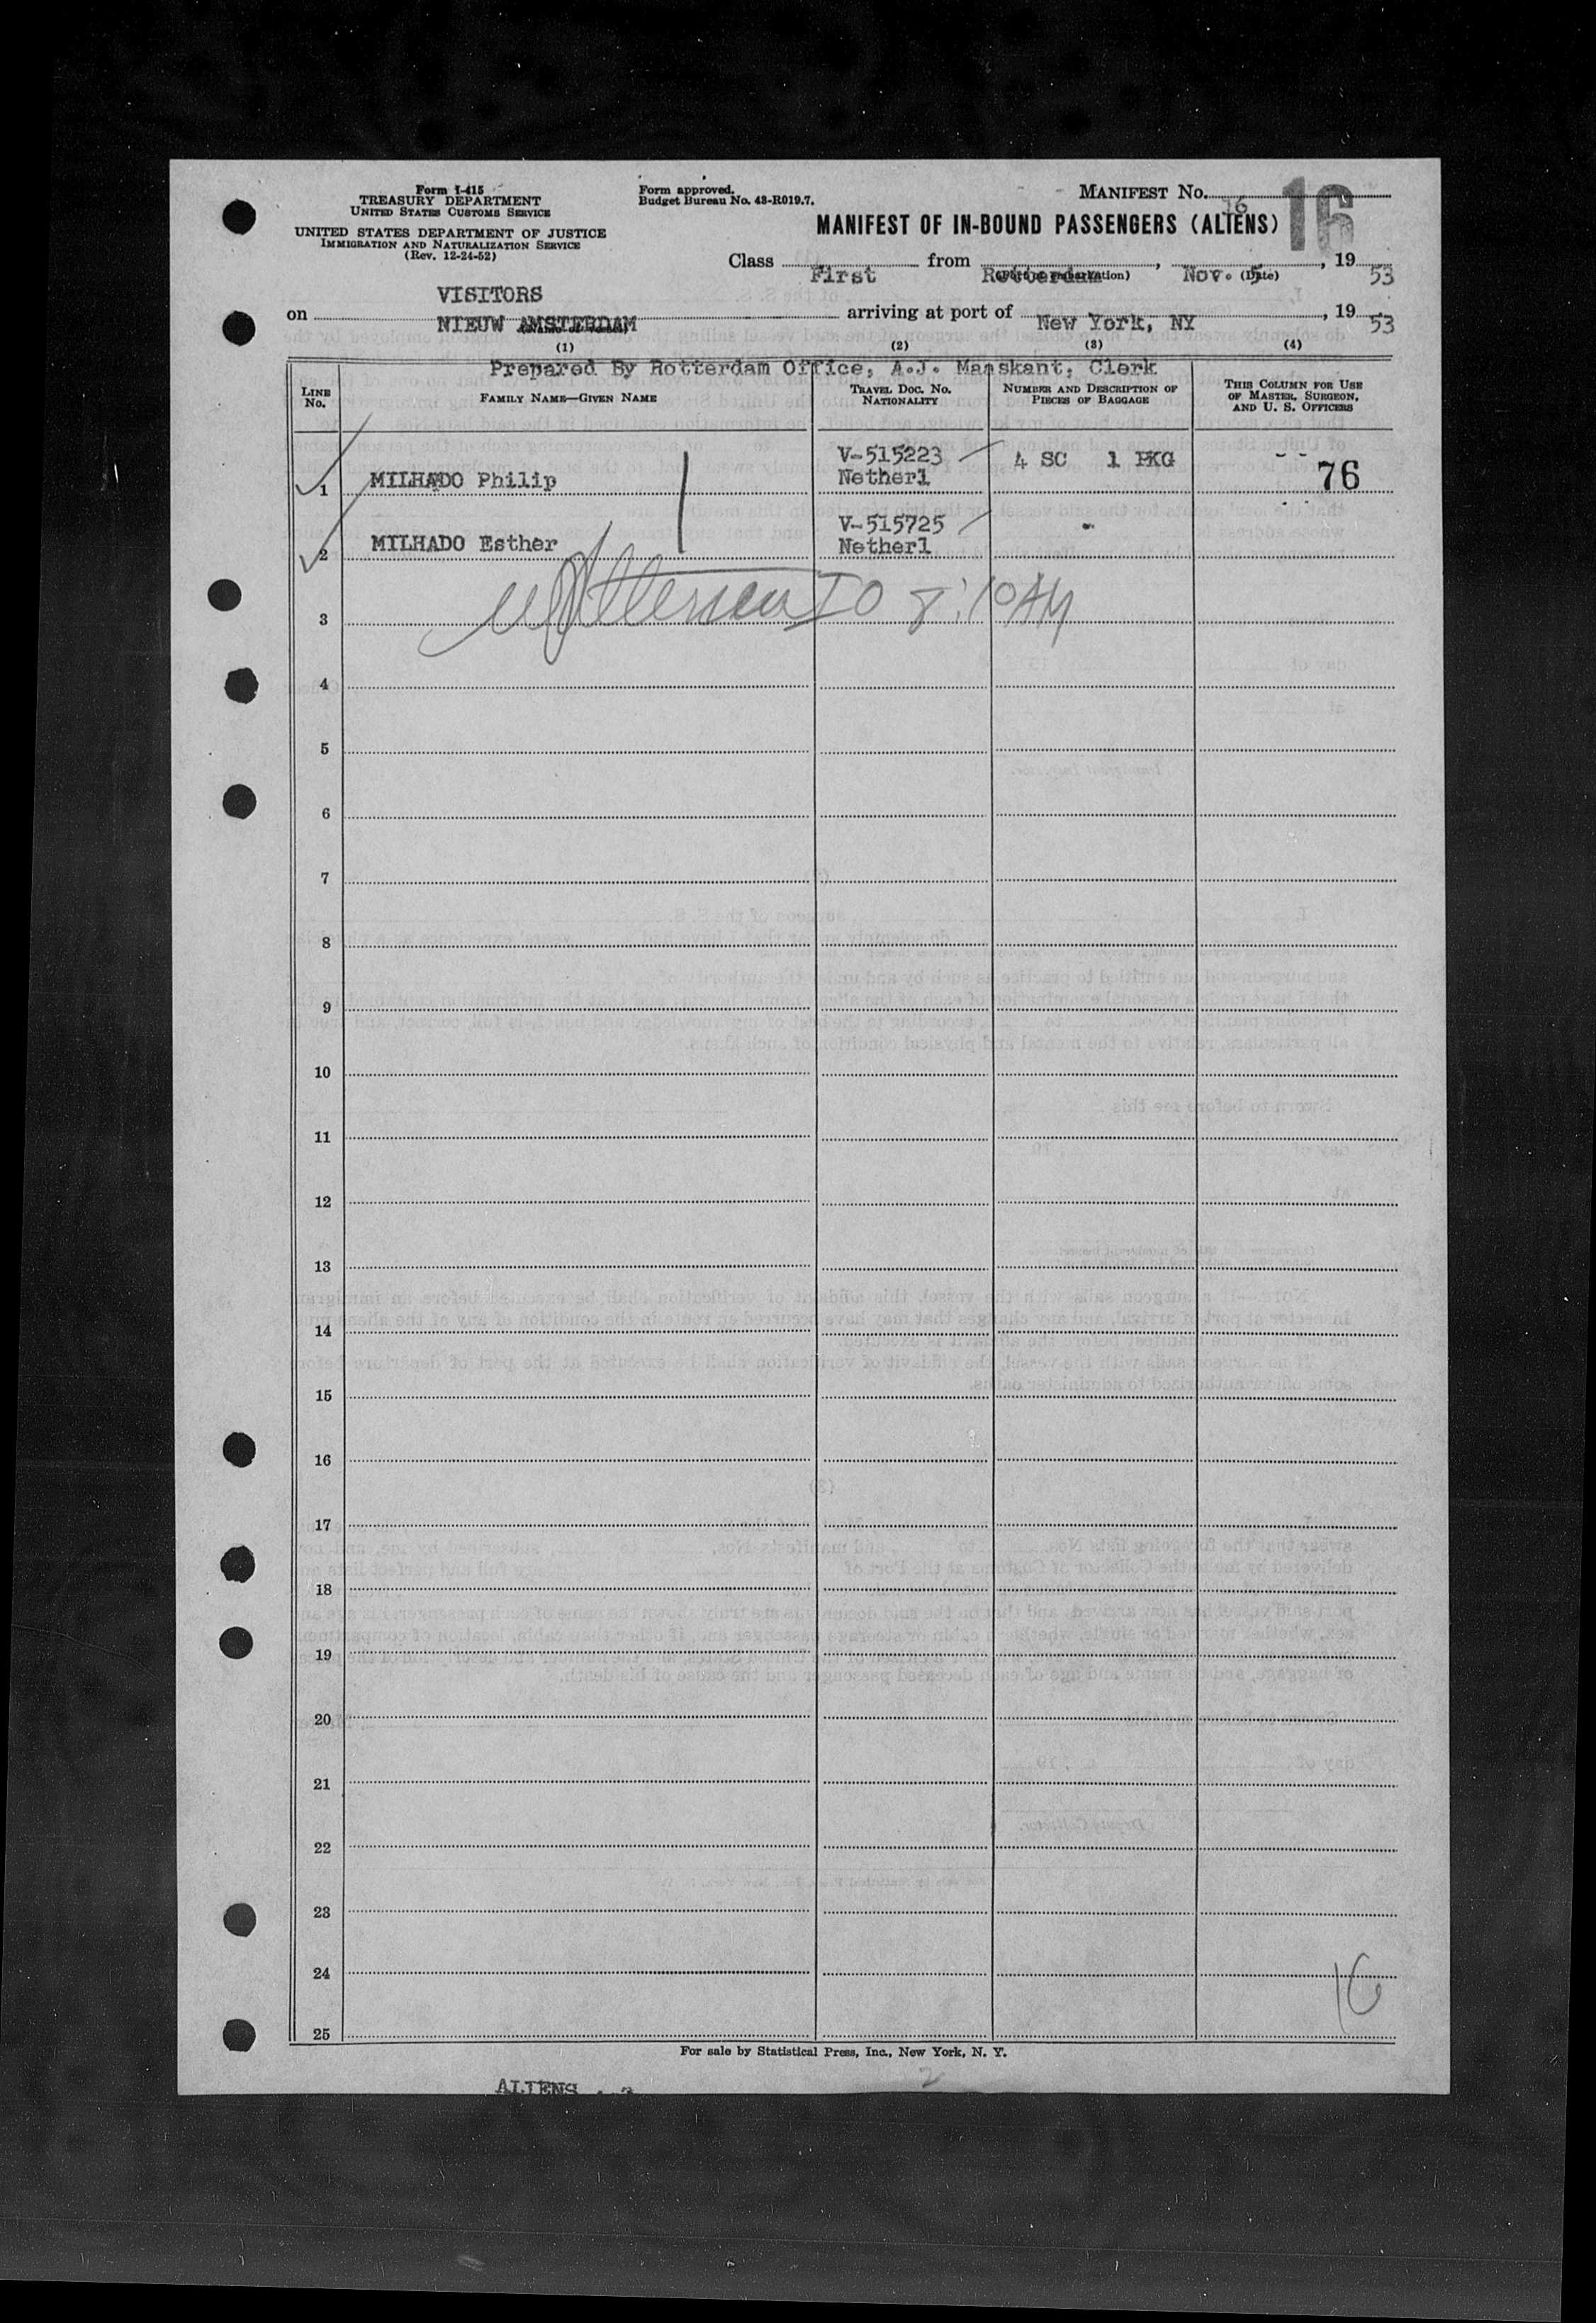 Form I-415
TREASURY DEPARTMENT
UNITED STATES CUSTOMS SERVICE
UNITED STATES DEPARTMENT OF JUSTICE
IMMIGRATION AND NATURALIZATION SERVICE
(Rev. 12-24-52)
Form approved.
Budget Bureau No. 43-R019.7.
MANIFEST NO. 16
16
MANIFEST OF IN-BOUND PASSENGERS (ALIENS)
Class First from Rotterdam, Nov. 5 (Date), 19 53
VISITORS
on NIEUW AMSTERDAM arriving at port of New York, NY, 19 53
(1) (2) (3) (4)
Prepared By Rotterdam Office, A.J. Maaskant, Clerk
LINE NO. FAMILY NAME—GIVEN NAME TRAVEL DOC. NO. NATIONALITY NUMBER AND DESCRIPTION OF PIECES OF BAGGAGE THIS COLUMN FOR USE OF MASTER, SURGEON, AND U. S. OFFICERS
1 MILHADO Philip V-515223 Netherl 4 SC 1 PKG 76
2 MILHADO Esther V-515725 Netherl -
3 IO 8:10 AM
4
5
6
7
8
9
10
11
12
13
14
15
16
17
18
19
20
21
22
23
24
25
16
For sale by Statistical Press, Inc., New York, N. Y.
2
ALIENS